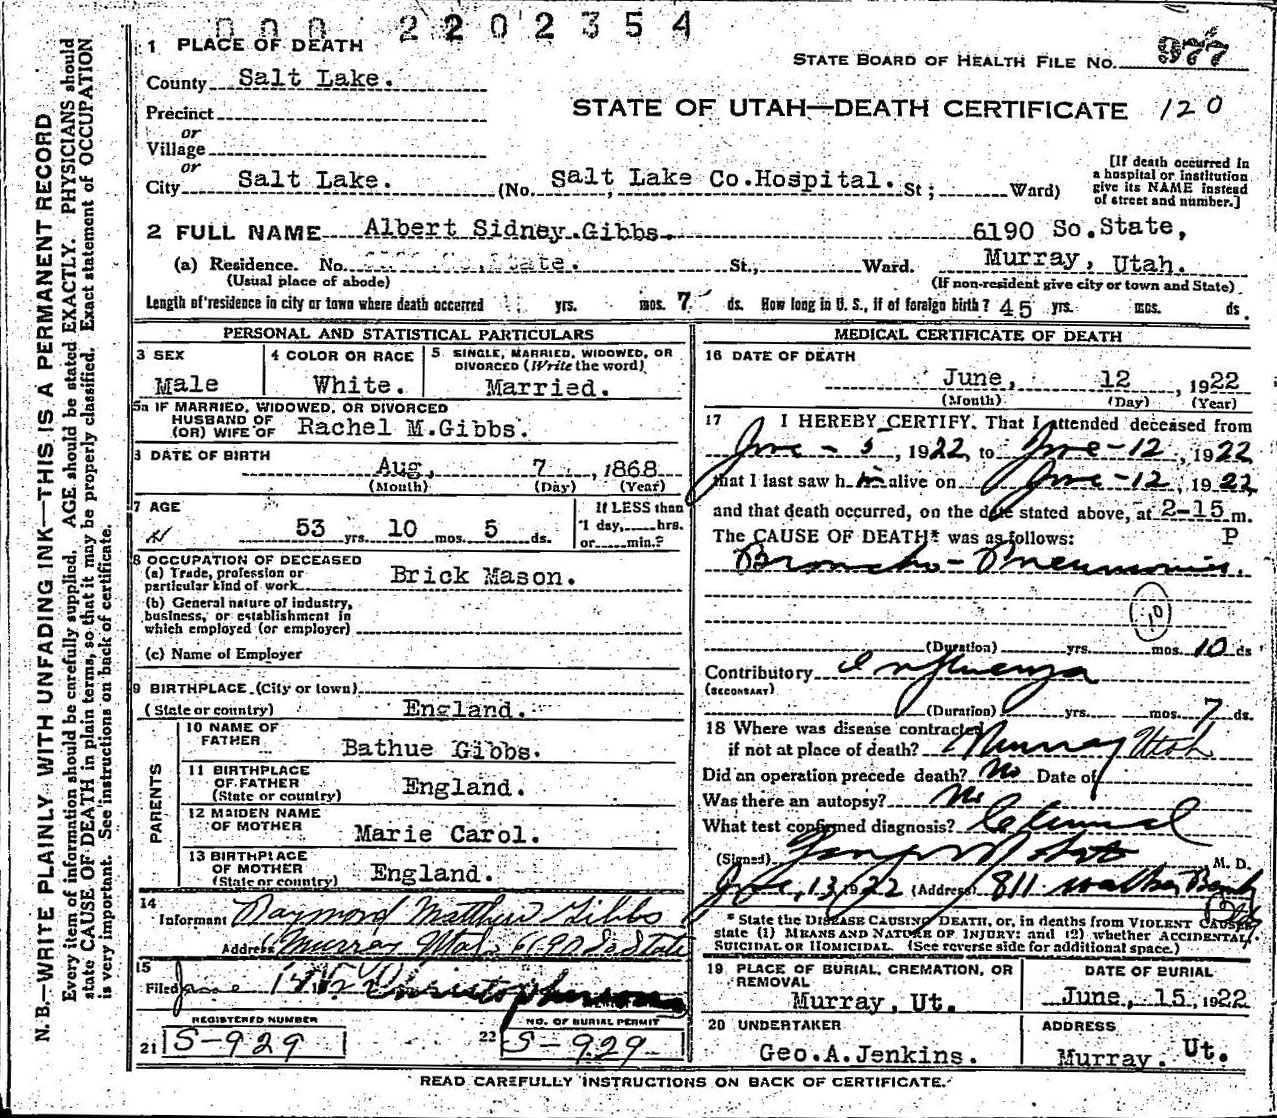 000 2202354
1 PLACE OF DEATH
STATE BOARD OF HEALTH FILE NO. 977
County Salt Lake.
STATE OF UTAH—DEATH CERTIFICATE 120
Precinct
or
Village
or
City Salt Lake. (No. Salt Lake Co.Hospital. St; Ward)
[If death occurred in
a hospital or institution
give its NAME instead
of street and number.]
2 FULL NAME Albert Sidney Gibbs. 6190 So.State,
(a) Residence. No. State. St., Ward. Murray, Utah.
(Usual place of abode) (If non-resident give city or town and State)
Length of residence in city or town where death occurred yrs. mos. 7 ds. How long in U. S., if of foreign birth? 45 yrs. mos. ds.
PERSONAL AND STATISTICAL PARTICULARS
3 SEX
Male
4 COLOR OR RACE
White.
5 SINGLE, MARRIED, WIDOWED, OR
DIVORCED (Write the word)
Married.
5a IF MARRIED, WIDOWED, OR DIVORCED
HUSBAND OF
(OR) WIFE OF Rachel M.Gibbs.
DATE OF BIRTH
Aug, 7, 1868
(Month) (Day) (Year)
7 AGE
53 yrs. 10 mos. 5 ds.
If LESS than
1 day, hrs.
or min.?
8 OCCUPATION OF DECEASED
(a) Trade, profession or
particular kind of work Brick Mason.
(b) General nature of industry,
business, or establishment in
which employed (or employer)
(c) Name of Employer
9 BIRTHPLACE (City or town)
(State or country) England.
PARENTS
10 NAME OF
FATHER Bathue Gibbs.
11 BIRTHPLACE
OF FATHER
(State or country) England.
12 MAIDEN NAME
OF MOTHER Marie Carol.
13 BIRTHPLACE
OF MOTHER
(State or country) England.
14
Informant Raymond Matthew Gibbs
Address Murray Utah 6190 So State
15
Filed June Christopherson
REGISTERED NUMBER
21 S-929
NO. OF BURIAL PERMIT
22 S-929
MEDICAL CERTIFICATE OF DEATH
16 DATE OF DEATH
June, 12, 1922
(Month) (Day) (Year)
17 I HEREBY CERTIFY, That I attended deceased from
June - 5, 1922, to June - 12, 1922
that I last saw him alive on June - 12, 1922
and that death occurred, on the date stated above, at 2-15 m.
The CAUSE OF DEATH* was as follows: P
Broncho - Pneumonia.
10
(Duration) yrs. mos. 10 ds
Contributory Influenza
(SECONDARY)
(Duration) yrs. mos. 7 ds.
18 Where was disease contracted
if not at place of death? Murray Utah
Did an operation precede death? No Date of
Was there an autopsy? No
What test confirmed diagnosis? Clinical
(Signed) M. D.
June, 13, 1922 (Address) 811 Walker Bank
* State the DISEASE CAUSING DEATH, or, in deaths from VIOLENT CAUSES,
state (1) MEANS AND NATURE OF INJURY: and (2) whether ACCIDENTAL,
SUICIDAL OR HOMICIDAL. (See reverse side for additional space.)
19 PLACE OF BURIAL, CREMATION, OR
REMOVAL
Murray, Ut.
DATE OF BURIAL
June, 15, 1922
20 UNDERTAKER
Geo.A.Jenkins.
ADDRESS
Murray. Ut.
READ CAREFULLY INSTRUCTIONS ON BACK OF CERTIFICATE.
N. B.—WRITE PLAINLY WITH UNFADING INK—THIS IS A PERMANENT RECORD
Every item of information should be carefully supplied. AGE should be stated EXACTLY. PHYSICIANS should
state CAUSE OF DEATH in plain terms, so that it may be properly classified. Exact statement of OCCUPATION
is very important. See instructions on back of certificate.